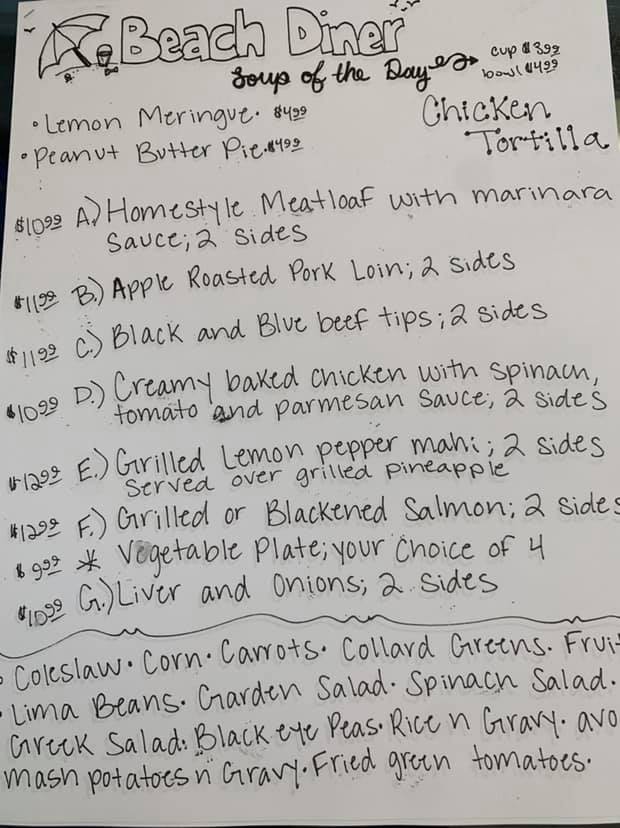 Beach Diner
Soup of the Day cup $3.99
bowl $4.99
• Lemon Meringue. $4.99
• Peanut Butter Pie. $4.99
Chicken
Tortilla
$10.99 A.) Homestyle Meatloaf with marinara
Sauce; 2 sides
$11.99 B.) Apple Roasted Pork Loin; 2 sides
$11.99 C.) Black and Blue beef tips; 2 sides
$10.99 D.) Creamy baked chicken with spinach,
tomato and parmesan sauce; 2 sides
$12.99 E.) Grilled Lemon pepper mahi; 2 sides
Served over grilled pineapple
$12.99 F.) Grilled or Blackened Salmon; 2 sides
$9.99 * Vegetable Plate; your choice of 4
$10.99 G.) Liver and Onions; 2 sides
• Coleslaw • Corn • Carrots • Collard Greens • Fruit
• Lima Beans • Garden Salad • Spinach Salad •
Greek Salad • Black eye Peas • Rice n Gravy • avo
mash potatoes n Gravy • Fried green tomatoes •